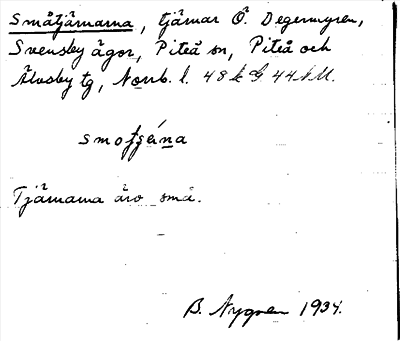 Småtjärnarna, tjärnar Ö. Degermyren,
Svensby ägor, Piteå sn, Piteå och
Älvsby tg, Norrb. l. 48 k G 44 N M.
Tjärnarna äro små.
B. Nygren 1934.